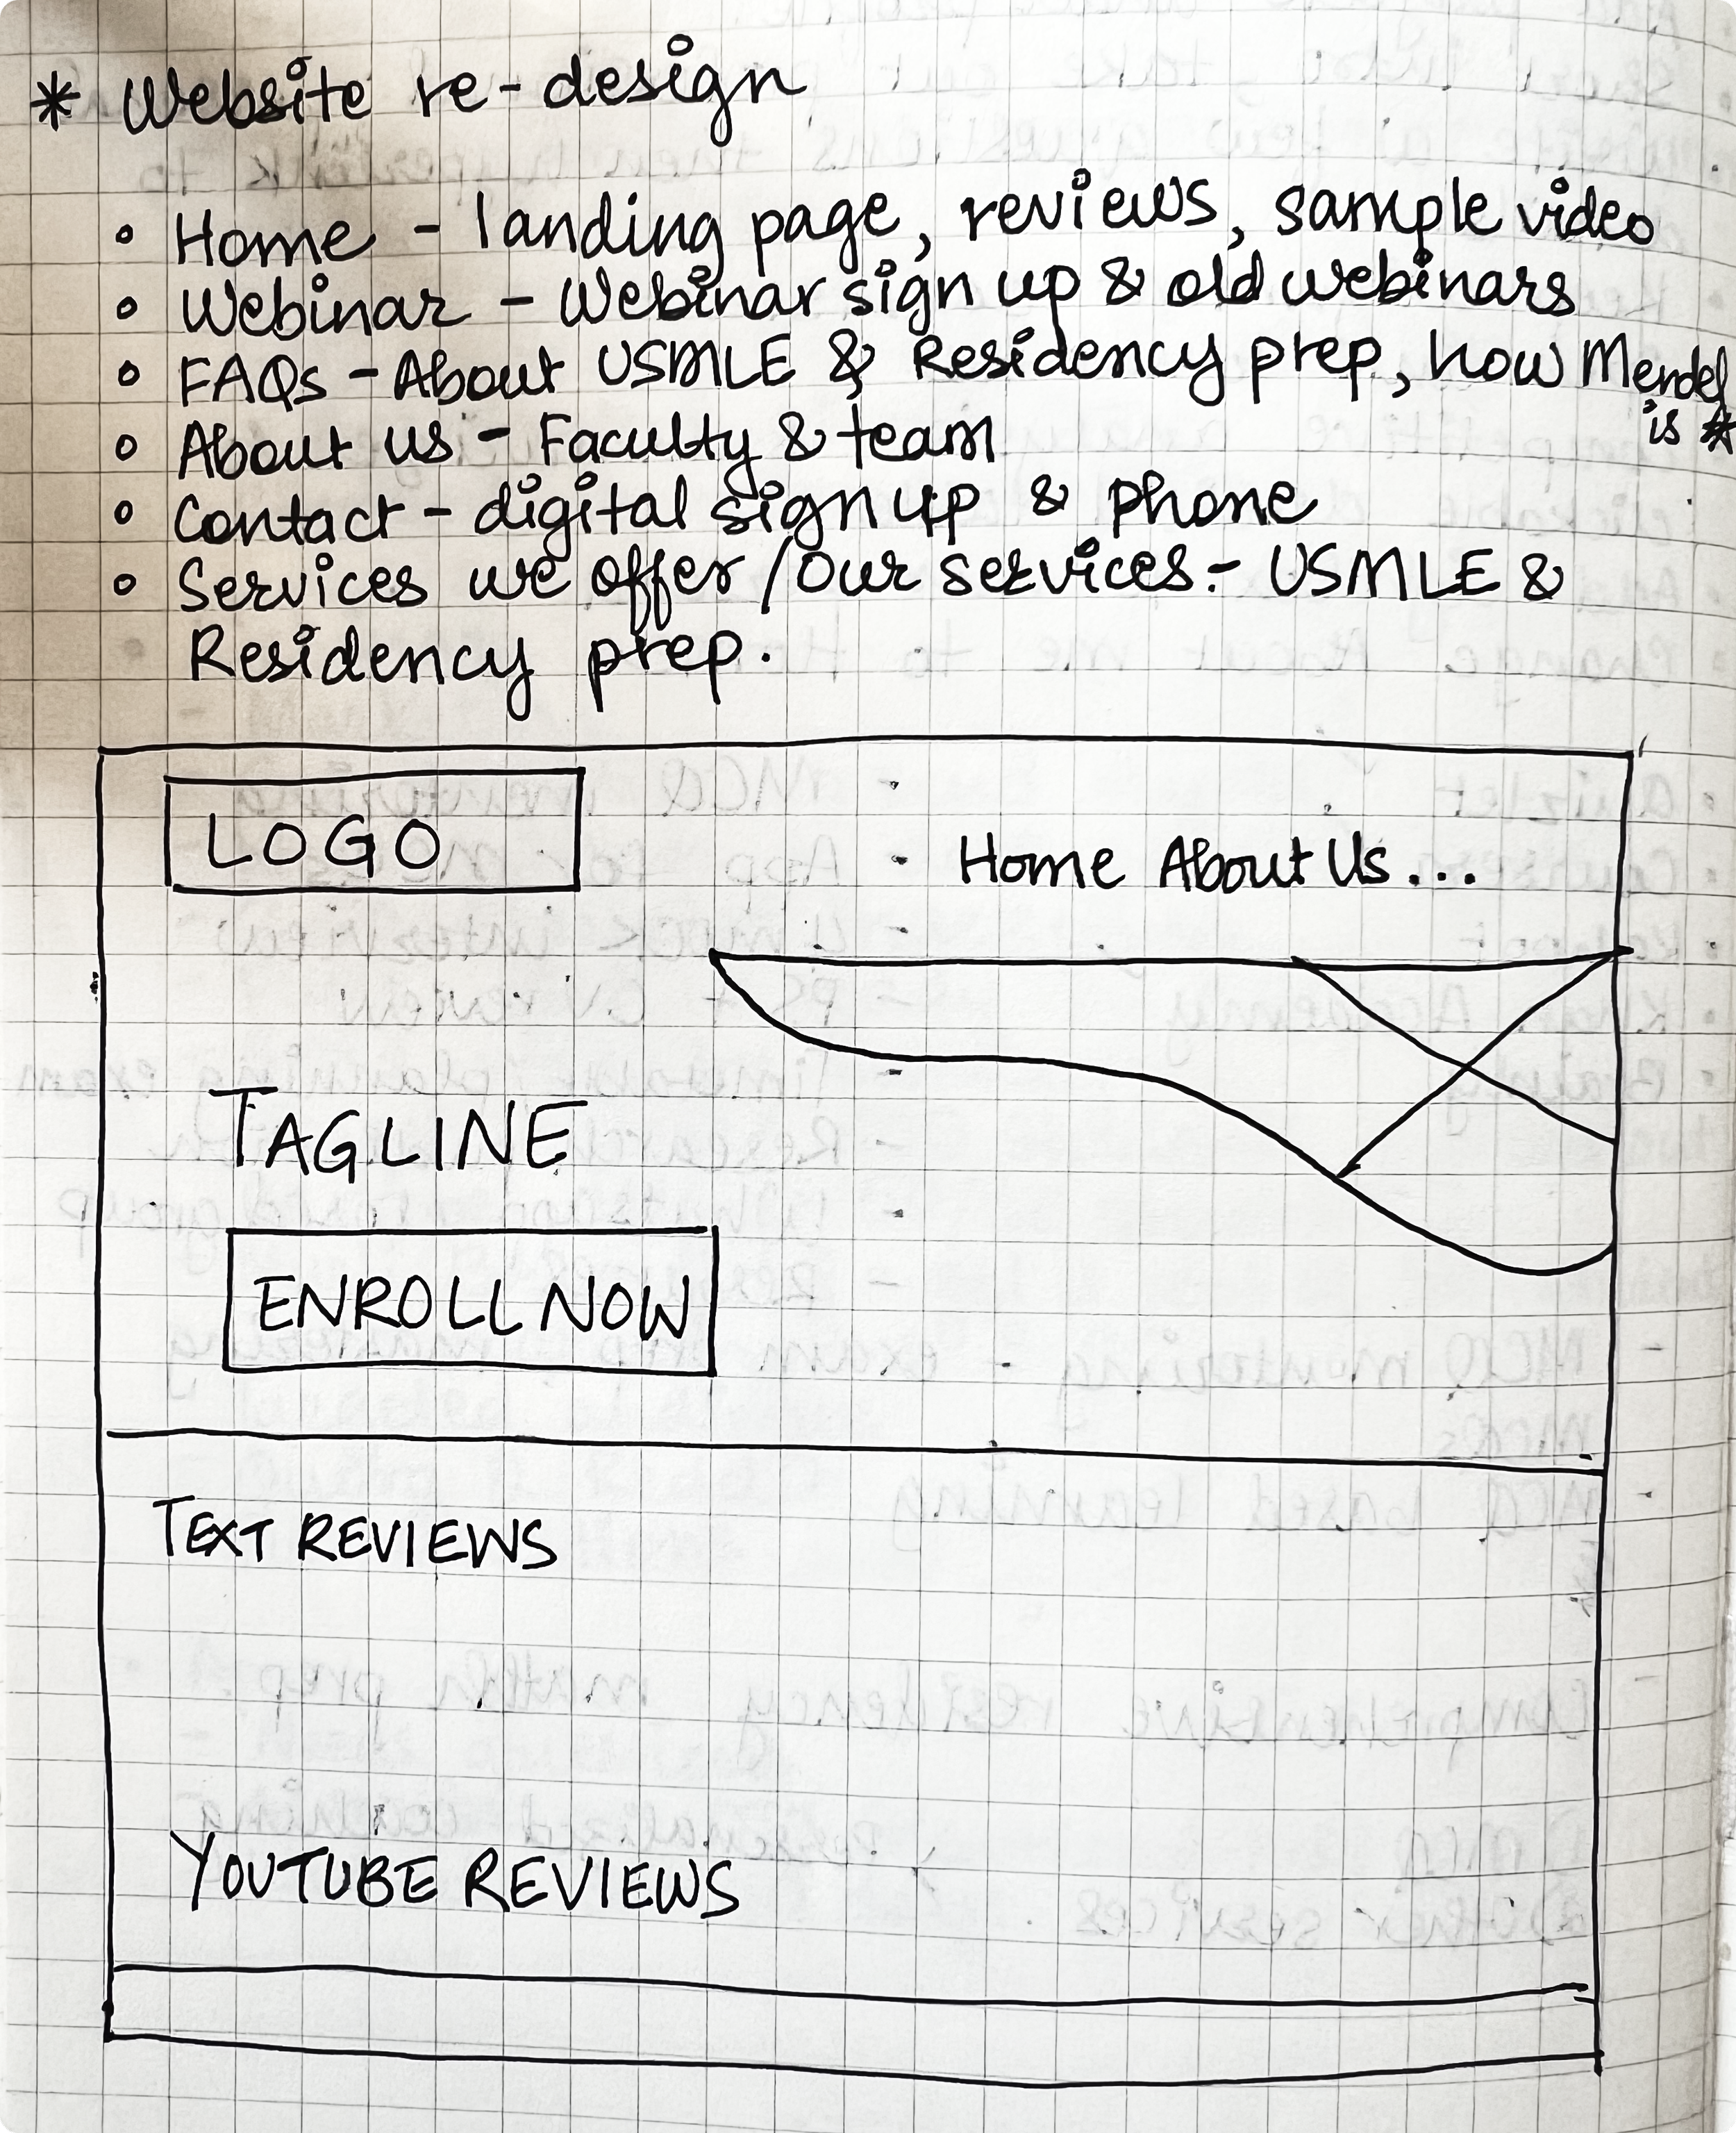 * Website re-design
• Home - landing page, reviews, sample video
• Webinar - Webinar sign up & old webinars
• FAQs - About USMLE & Residency prep, how Mendel
is *
• About us - Faculty & team
• Contact - digital sign up & phone
• Services we offer / Our services:- USMLE &
Residency prep.
LOGO
Home About Us...
TAGLINE
ENROLL NOW
TEXT REVIEWS
YOUTUBE REVIEWS